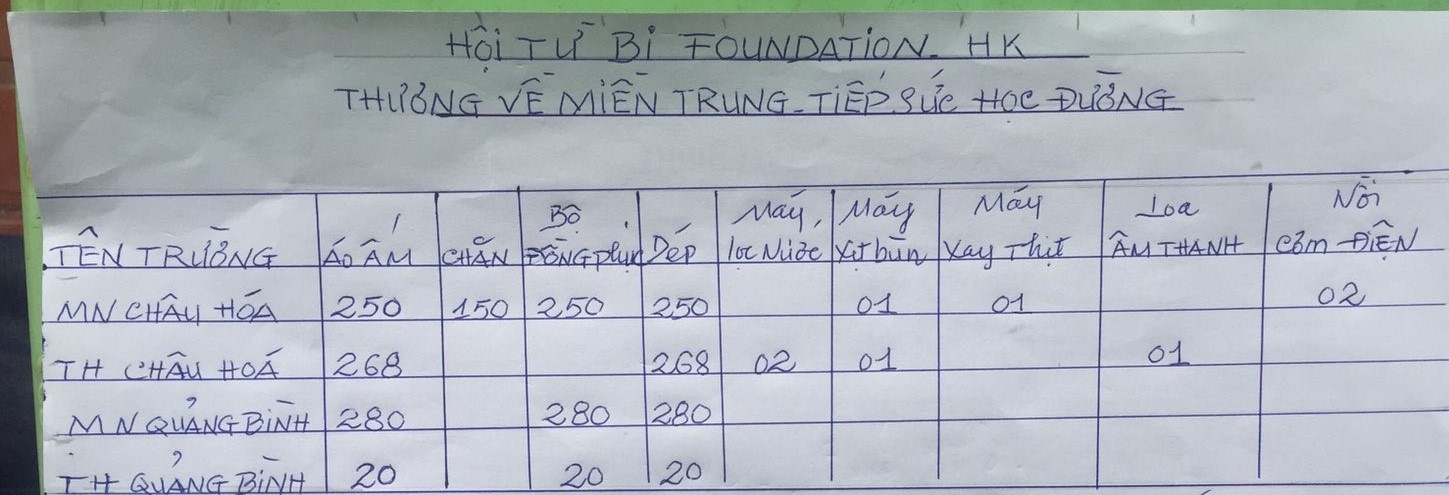 HỘI TỪ BI FOUNDATION - HK
THƯƠNG VỀ MIỀN TRUNG - TIẾP SỨC HỌC ĐƯỜNG
TÊN TRƯỜNG ÁO ẤM CHĂN BỘ ĐỒNG phục Dép Máy lọc Nước Máy Xịt bùn Máy Xay Thịt Loa ÂM THANH Nồi Cơm ĐIỆN
MN CHÂU HÓA 250 150 250 250 01 01 02
TH CHÂU HOÁ 268 268 02 01 01
MN QUẢNG BÌNH 280 280 280
TH QUẢNG BÌNH 20 20 20